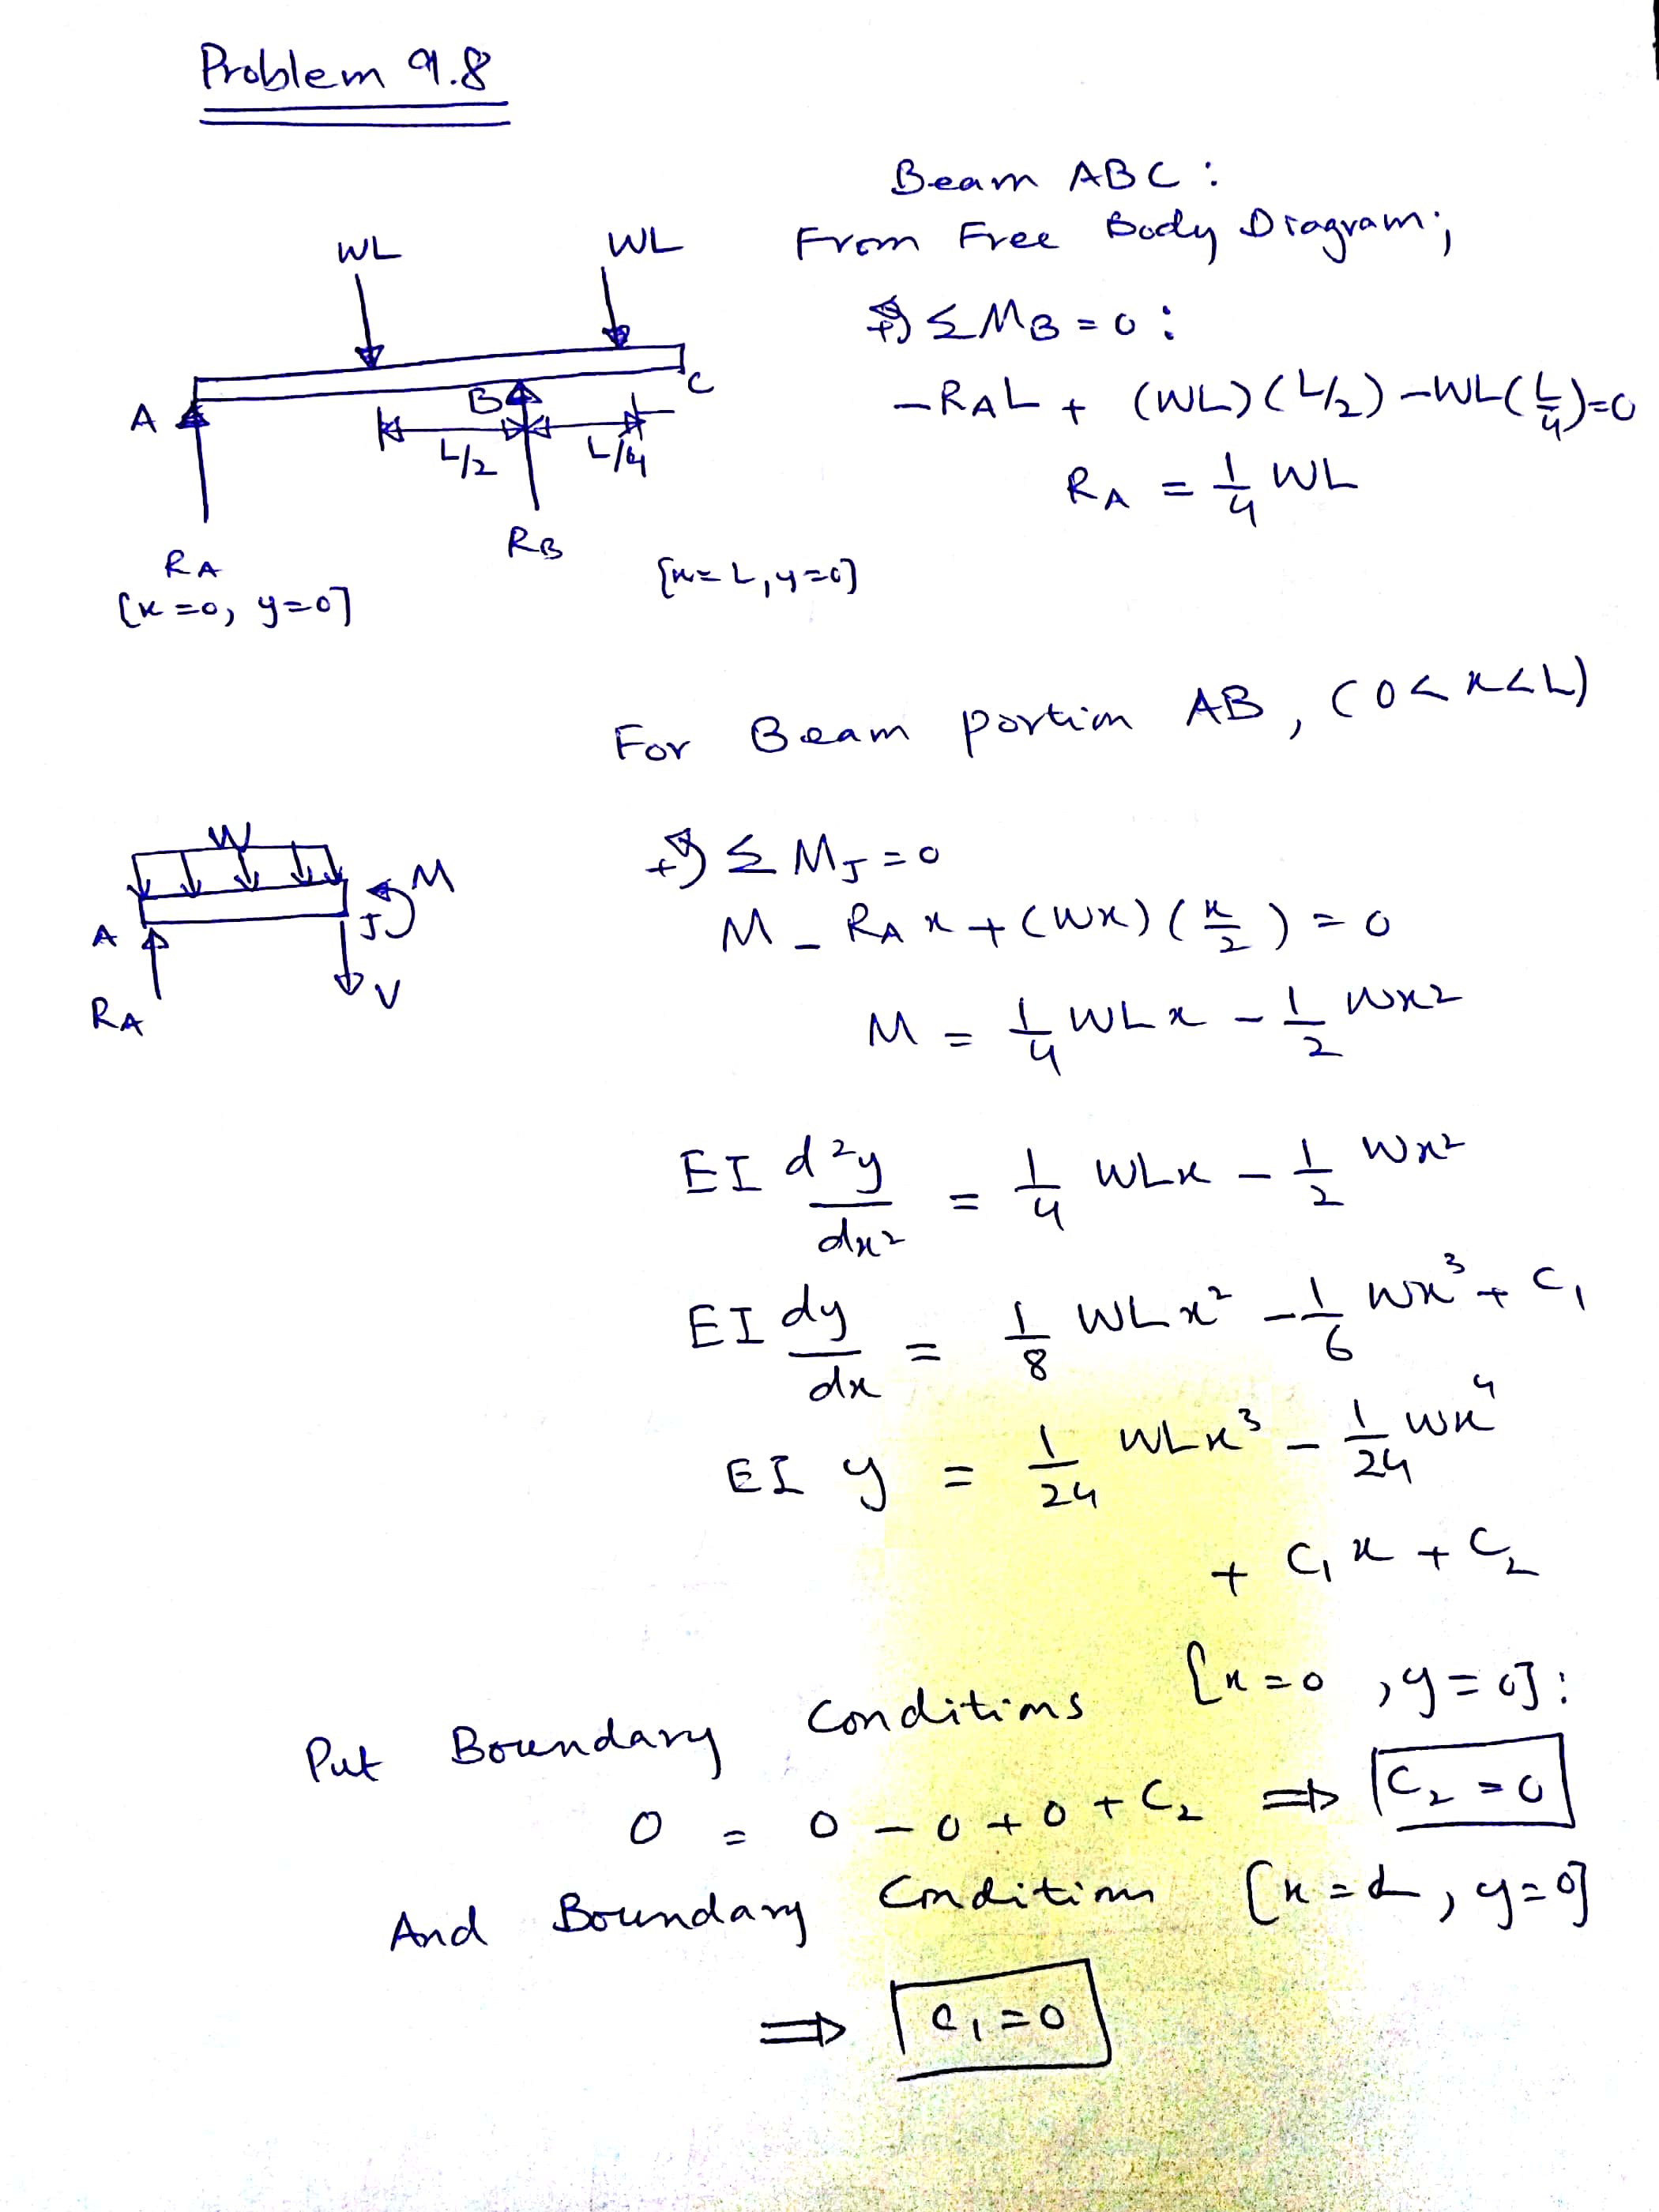 Problem 9.8
Beam ABC :
From Free Body Diagram;
WL
WL
+) ΣM_B = 0 :
A
B
C
L/2
L/4
-R_A L + (WL)(L/2) - WL(L/4) = 0
R_A = 1/4 WL
R_A
R_B
[x=0, y=0]
[x=L, y=0]
For Beam portion AB, (0<x<L)
W
M
A
J
R_A
V
+) ΣM_J = 0
M - R_A x + (Wx)(x/2) = 0
M = 1/4 WLx - 1/2 Wx²
EI d²y/dx² = 1/4 WLx - 1/2 Wx²
EI dy/dx = 1/8 WLx² - 1/6 Wx³ + C₁
EI y = 1/24 WLx³ - 1/24 Wx⁴
+ C₁x + C₂
Put Boundary Conditions [x=0, y=0]:
0 = 0 - 0 + 0 + C₂ ⇒ C₂ = 0
And Boundary Conditions [x=L, y=0]
⇒ C₁=0